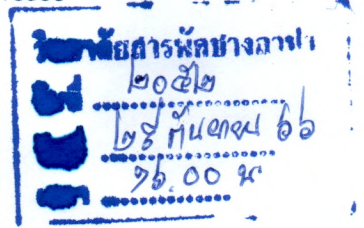 วิทยาลัยสารพัดช่างลำปาง
ที่ ๒๐๕๒
๒๕ กันยายน ๖๖
00 น